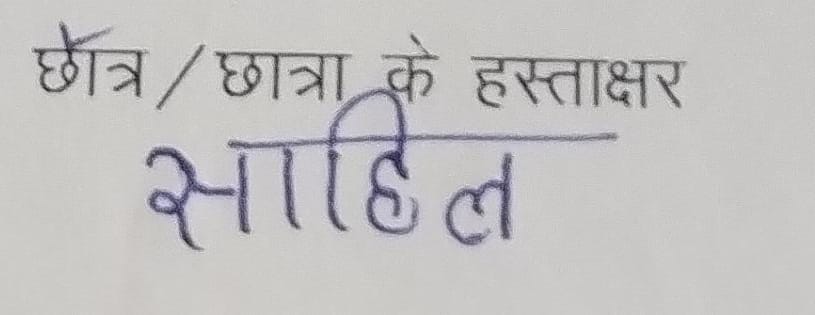 छात्र / छात्रा के हस्ताक्षर
साहिल